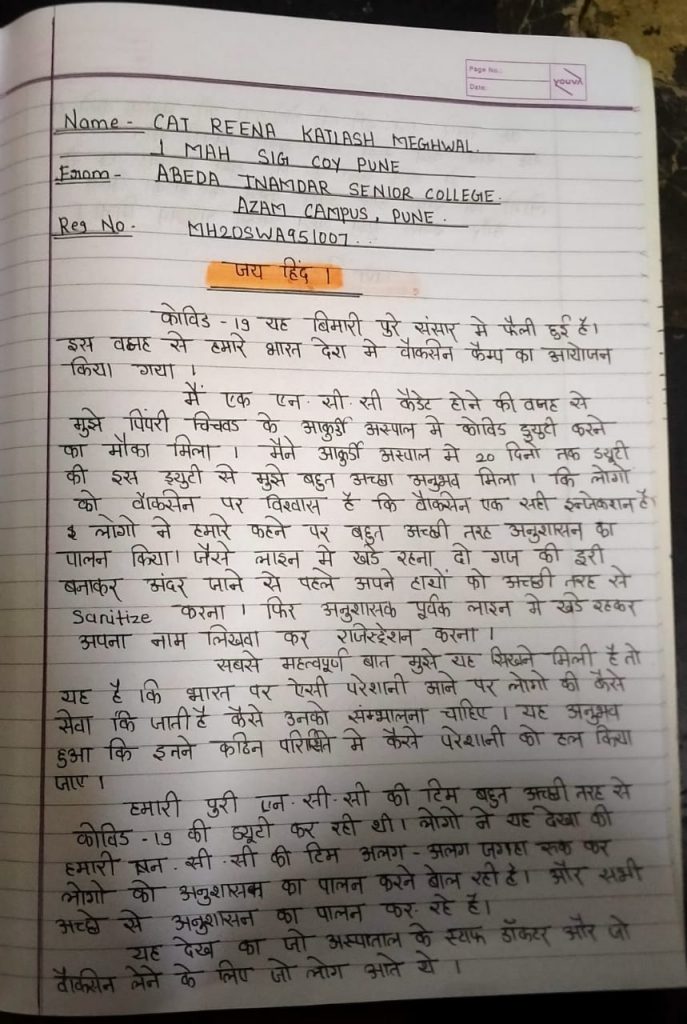 Page No.:
Date:
YOUVA
Name - CAT REENA KATLASH MEGHWAL.
1 MAH SIG COY PUNE
Exam - ABEDA INAMDAR SENIOR COLLEGE.
AZAM CAMPUS, PUNE.
Reg No. MH20SWA951007..
जय हिंद ।
कोविड -19 यह बिमारी पुरे संसार मे फैली हुई है।
इस वजह से हमारे भारत देश मे वॅाकसेन कॅम्प का आयोजन
किया गया ।
मैं एक एन.सी.सी कॅडेट होने की वजह से
मुझे पिंपरी चिंचवड के आकुर्डी अस्पाल मे कोविड ड्युटी करने
का मौका मिला । मैने आकुर्डी अस्पाल मे 20 दिनो तक ड्यूटी
की इस ड्युटी से मुझे बहुत अच्छा अनुभव मिला । कि लोगो
को वॅाकसेन पर विश्वास है कि वॅाकसेन एक सही इन्जेकशन है।
लोगो ने हमारे कहने पर बहुत अच्छी तरह अनुशासन का
पालन किया। जैसे लाइन मे खडे रहना दो गज की दूरी
बनाकर अंदर जाने से पहले अपने हाथों को अच्छी तरह से
Sanitize करना । फिर अनुशासक पूर्वक लाइन मे खडे रहकर
अपना नाम लिखवा कर रजिस्ट्रेशन करना ।
सबसे महत्वपूर्ण बात मुझे यह सिखने मिली है तो
यह है कि भारत पर ऐसी परेशानी आने पर लोगो की कैसे
सेवा कि जाती है कैसे उनको संम्भालना चाहिए । यह अनुभव
हुआ कि इतने कठिन परिस्थिते मे कैसे परेशानी को हल किया
जाए ।
हमारी पुरी एन.सी.सी की टिम बहुत अच्छी तरह से
कोविड -19 की ड्यूटी कर रही थी। लोगो ने यह देखा की
हमारी एन.सी.सी की टिम अलग-अलग जगहा रूक कर
लोगो को अनुशासक का पालन करने बोल रही है। और सभी
अच्छे से अनुशासन का पालन कर रहे है।
यह देख का जो अस्पाताल के स्टाफ डॉकटर और जो
वॅाकसेन लेने के लिए जो लोग आते थे ।